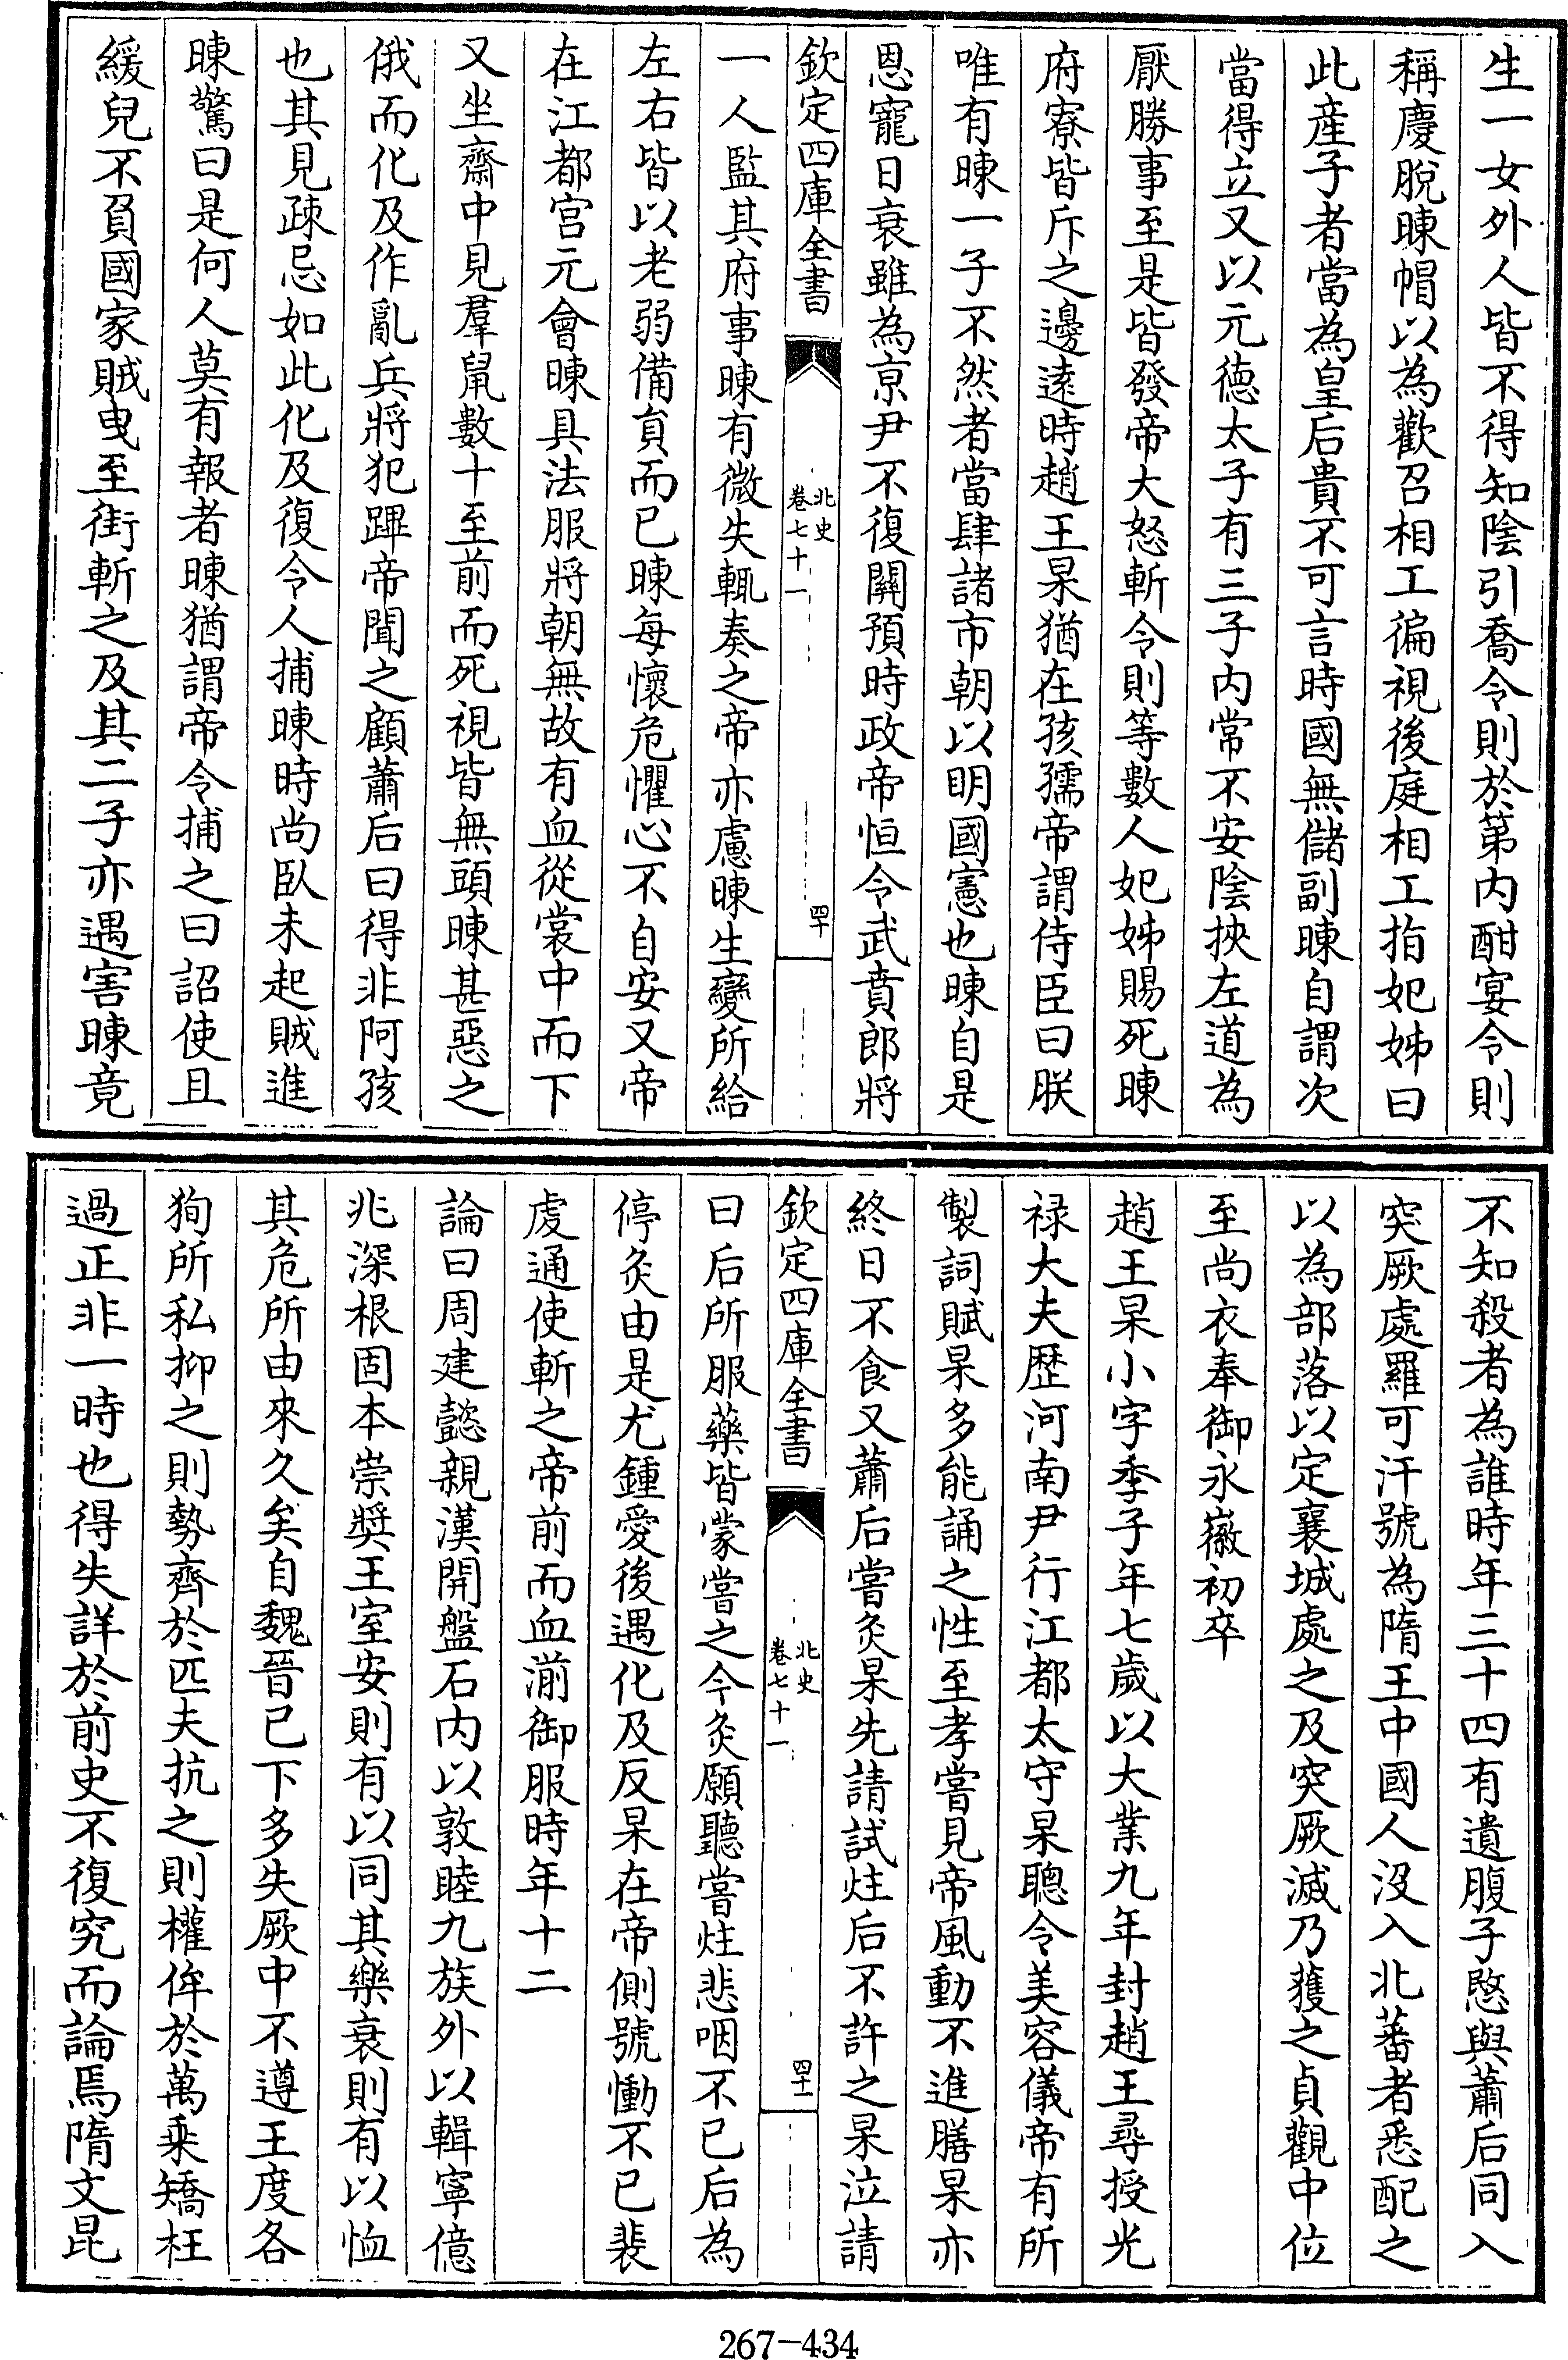 生一女外人皆不得知陰引喬令則於第内酣宴令則
稱慶脫暕帽以為歡召相工徧視後庭相工指妃姊曰
此產子者當為皇后貴不可言時國無儲副暕自謂次
當得立又以元德太子有三子内常不安陰挾左道為
厭勝事至是皆發帝大怒斬令則等數人妃姊賜死暕
府寮皆斥之邊逺時趙王杲猶在孩孺帝謂侍臣曰朕
唯有暕一子不然者當肆諸市朝以明國憲也暕自是
恩寵日衰雖為京尹不復關預時政帝恒令武賁郎將
欽定四庫全書
北史
卷七十一
四十
一人監其府事暕有微失輒奏之帝亦慮暕生變所給
左右皆以老弱備負而已暕每懷危懼心不自安又帝
在江都宫元會暕具法服將朝無故有血從裳中而下
又坐齋中見羣鼠數十至前而死視皆無頭暕甚惡之
俄而化及作亂兵將犯蹕帝聞之顧蕭后曰得非阿孩
也其見疎忌如此化及復令人捕暕時尚臥未起賊進
暕驚曰是何人莫有報者暕猶謂帝令捕之曰詔使且
緩兒不負國家賊曳至街斬之及其二子亦遇害暕竟
不知殺者為誰時年三十四有遺腹子愍與蕭后同入
突厥處羅可汗號為隋王中國人没入北蕃者悉配之
以為部落以定襄城處之及突厥滅乃獲之貞觀中位
至尚衣奉御永徽初卒
趙王杲小字季子年七歲以大業九年封趙王尋授光
禄大夫歷河南尹行江都太守杲聰令美容儀帝有所
製詞賦杲多能誦之性至孝嘗見帝風動不進膳杲亦
終日不食又蕭后當灸杲先請試炷后不許之杲泣請
欽定四庫全書
北史
卷七十一
四十一
曰后所服藥皆蒙嘗之今灸願聽嘗炷悲咽不已后為
停灸由是尤鍾愛後遇化及反杲在帝側號慟不已裴
虔通使斬之帝前而血湔御服時年十二
論曰周建懿親漢開盤石内以敦睦九族外以輯寧億
兆深根固本崇奬王室安則有以同其樂衰則有以恤
其危所由來久矣自魏晉已下多失厥中不遵王度各
狥所私抑之則勢齊於匹夫抗之則權侔於萬乘矯枉
過正非一時也得失詳於前史不復究而論焉隋文昆
267-434